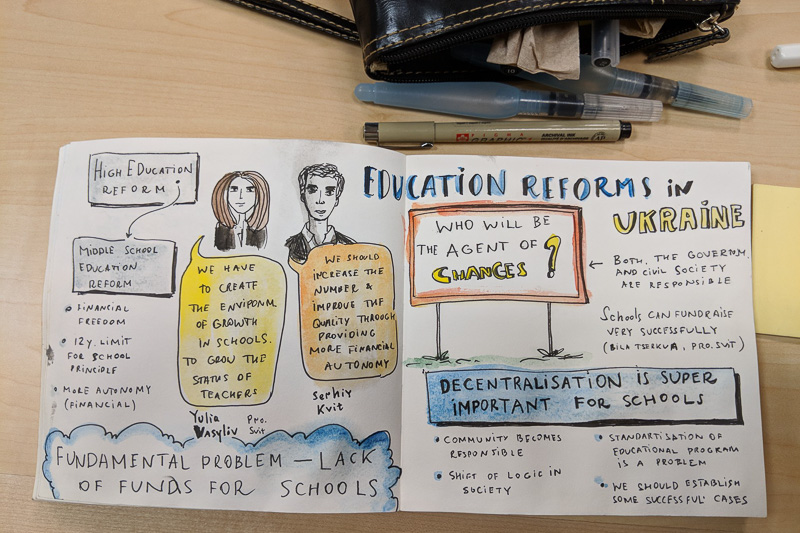 HIGH EDUCATION
REFORM
MIDDLE SCHOOL
EDUCATION
REFORM
FINANCIAL
FREEDOM
12 Y. LIMIT
FOR SCHOOL
PRINCIPLE
MORE AUTONOMY
(FINANCIAL)
WE HAVE
TO CREATE
THE ENVIPONM.
OF GROWTH
IN SCHOOLS.
TO GROW THE
STATUS OF
TEACHERS
Yulia
Vasyliv
Pro.
Svit
WE SHOULD
INCREASE THE
NUMBER &
IMPROVE THE
QUALITY THROUGH
PROVIDING
MORE FINANCIAL
AUTONOMY
Serhiy
Kvit
FUNDAMENTAL PROBLEM — LACK
OF FUNDS FOR SCHOOLS
EDUCATION REFORMS IN
UKRAINE
WHO WILL BE
THE AGENT OF
CHANGES ?
BOTH, THE GOVERNM.
AND CIVIL SOCIETY
ARE RESPONSIBLE
SCHOOLS CAN FUNDRAISE
VERY SUCCESSFULLY
(BILA TSERKVA, PRO.SVIT)
DECENTRALISATION IS SUPER
IMPORTANT FOR SCHOOLS
COMMUNITY BECOMES
RESPONSIBLE
SHIFT OF LOGIC IN
SOCIETY
STANDARTISATION OF
EDUCATIONAL PROGRAM
IS A PROBLEM
WE SHOULD ESTABLISH
SOME SUCCESSFUL CASES
ARCHIVAL INK